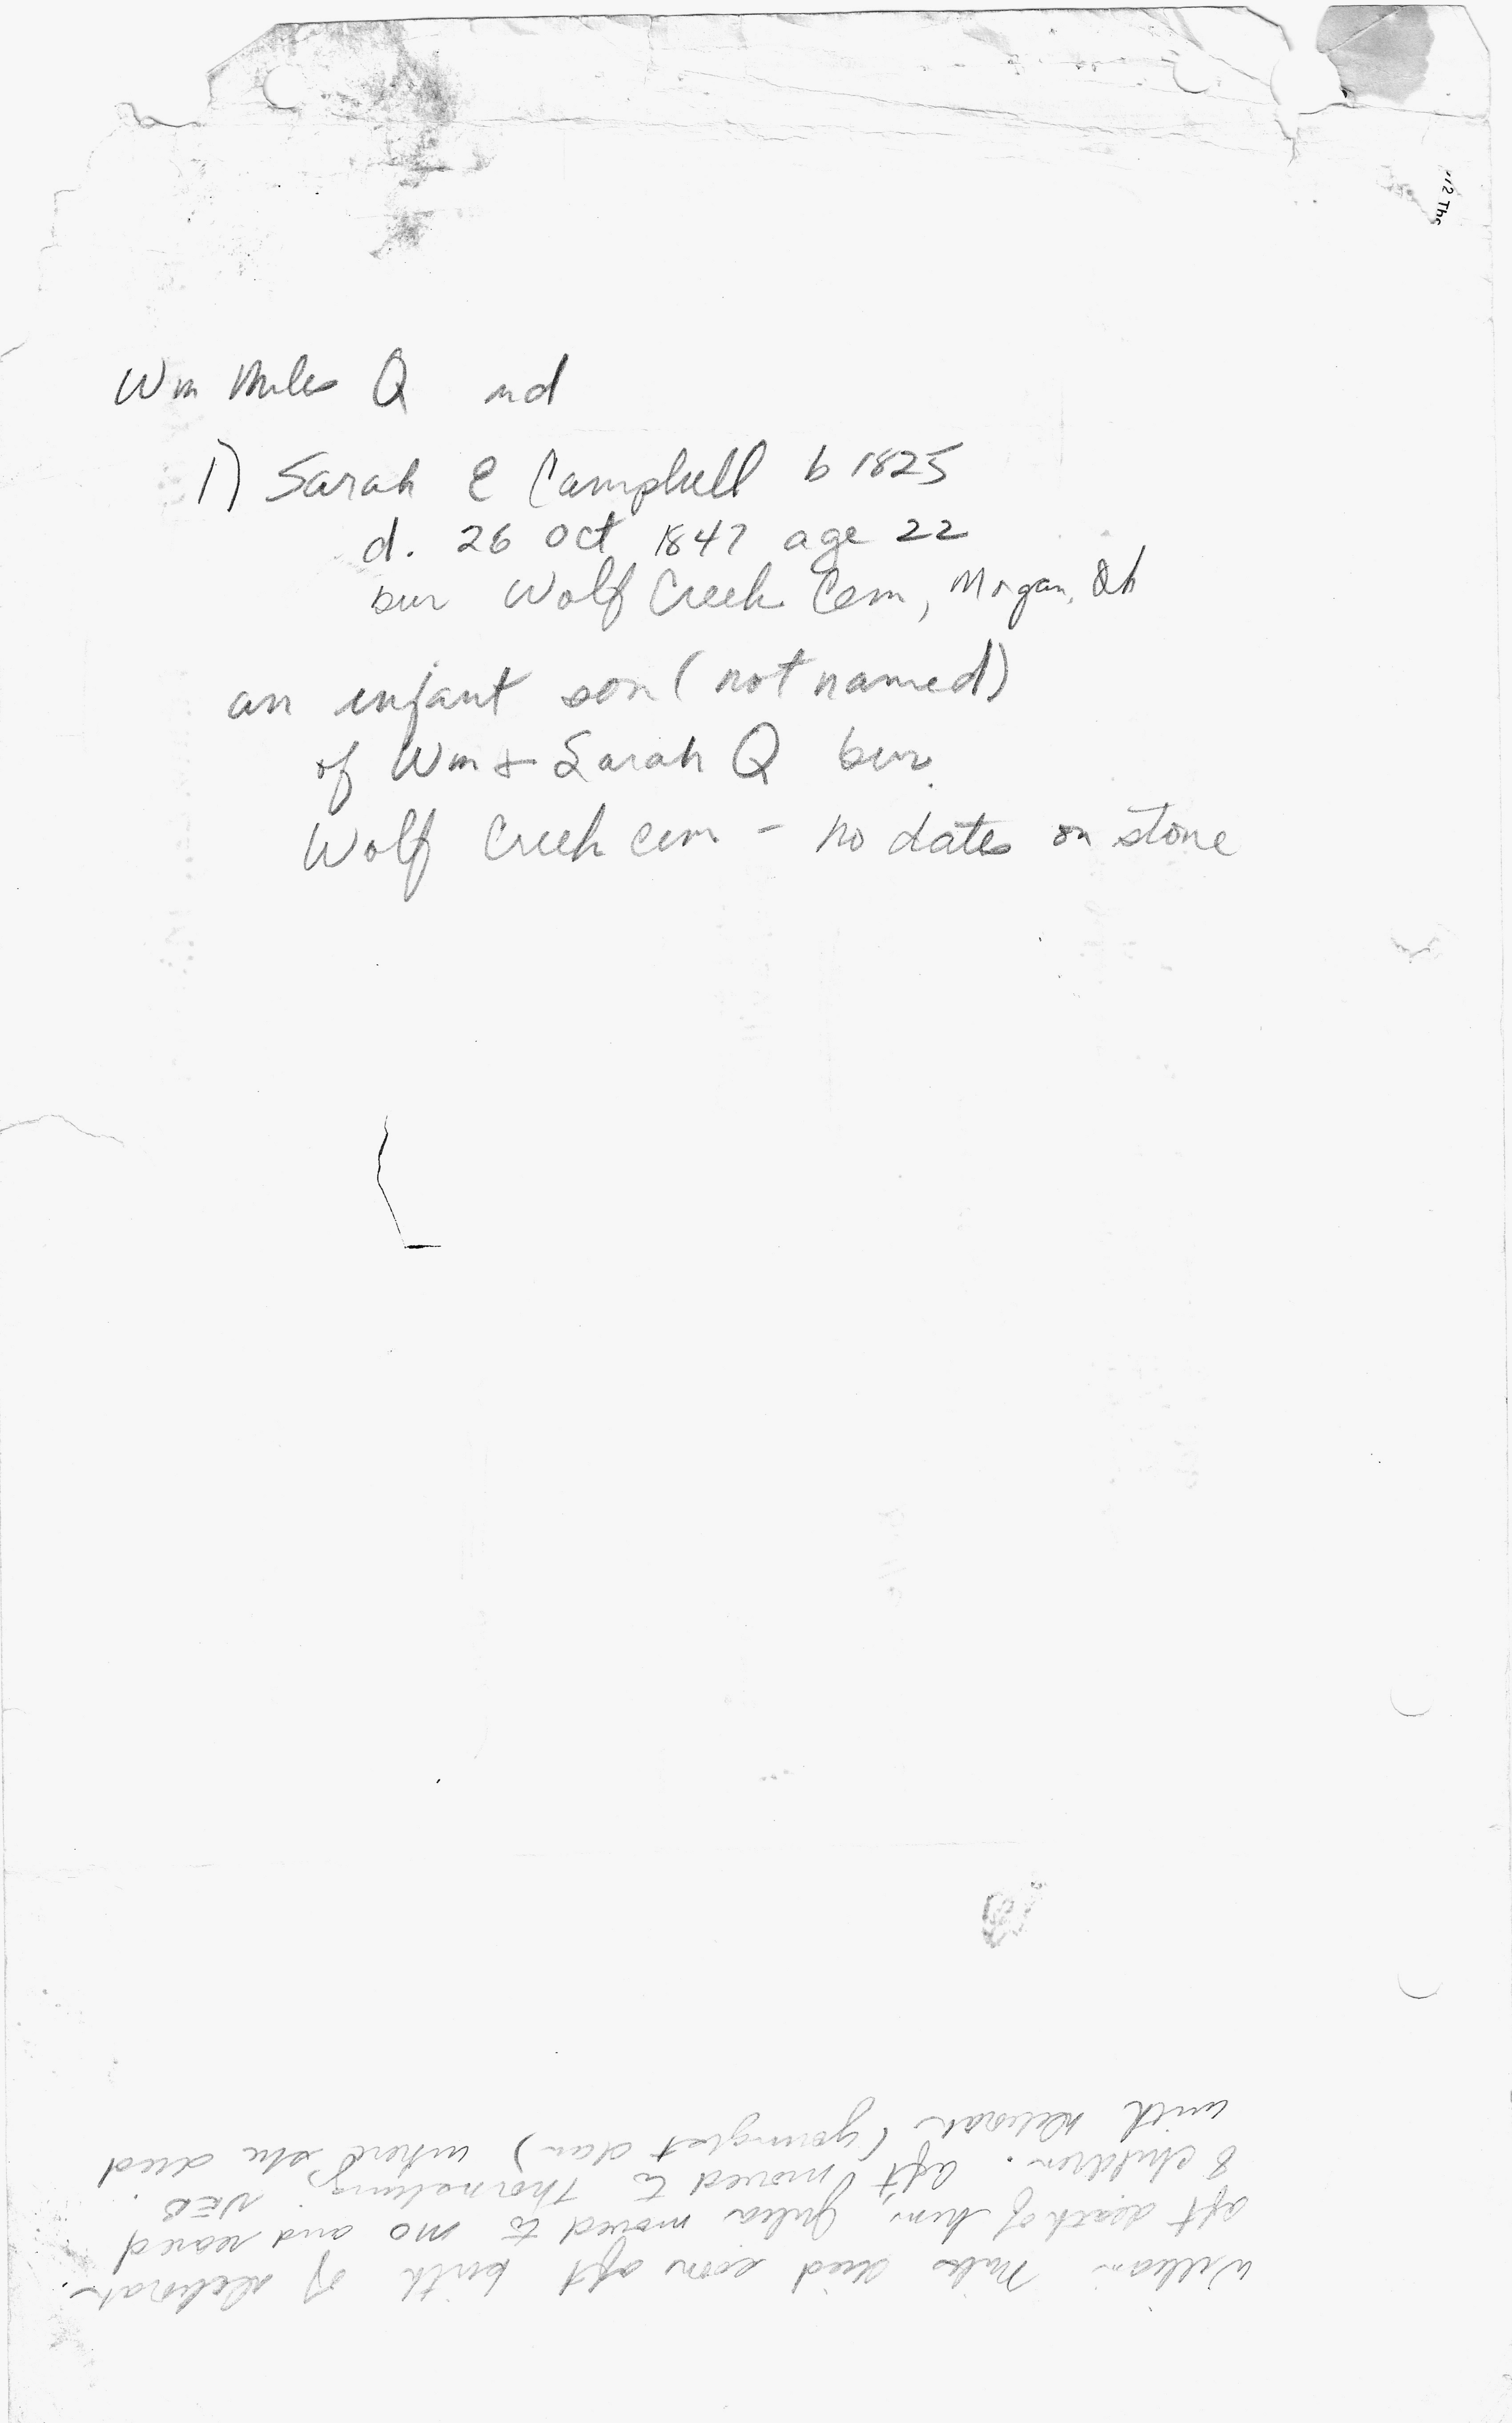 Wm Miles Q md
1) Sarah E Campbell b 1825
d. 26 Oct 1847 age 22
bur Wolf Creek Cem, Morgan, Oh
an infant son (not named)
of Wm & Sarah Q bur.
Wolf Creek cem - no dates on stone
William Miles died soon aft birth of
aft death of him, Julia moved to Mo and reared
8 children. aft moved to NEB
with (youngest dau) where she died